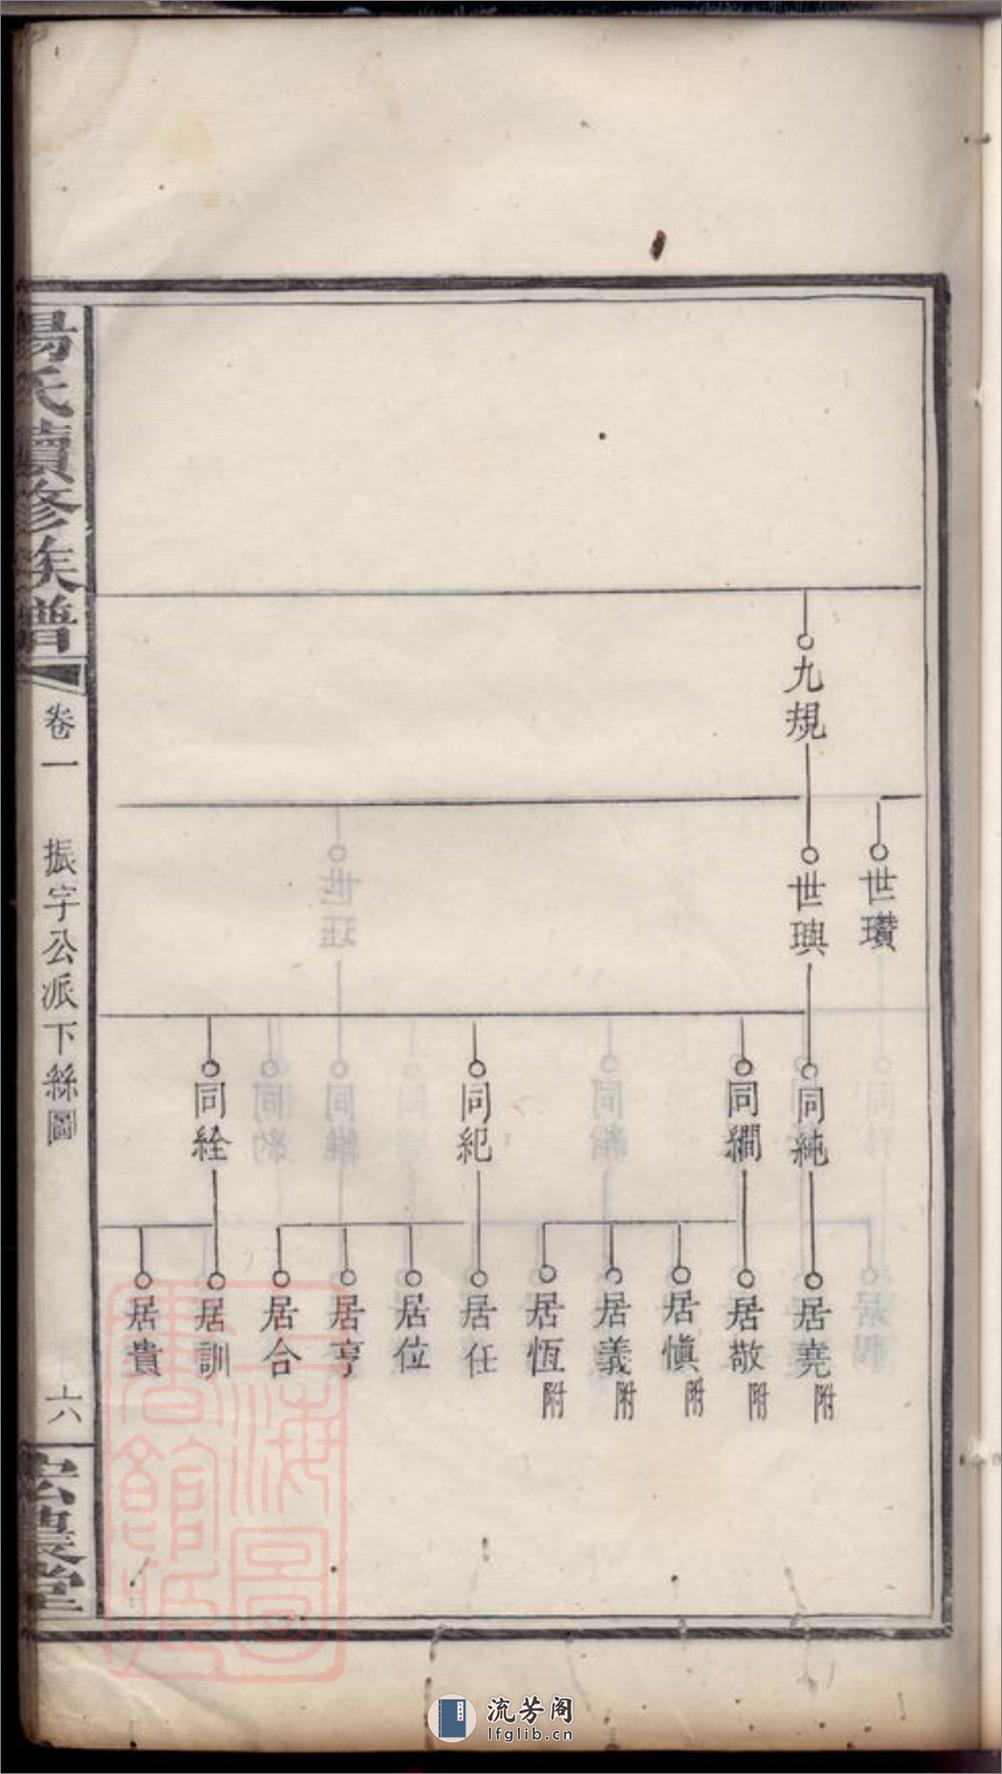 九規
世瓚
世璵
同純
同繝
同紀
同絟
居堯附
居敬附
居愼附
居義附
居恆附
居任
居位
居亨
居合
居訓
居貴
楊氏續修族譜
卷一
振宇公派下絲圖
六
宏農堂
上海圖書館藏
流芳阁
lfglib.cn